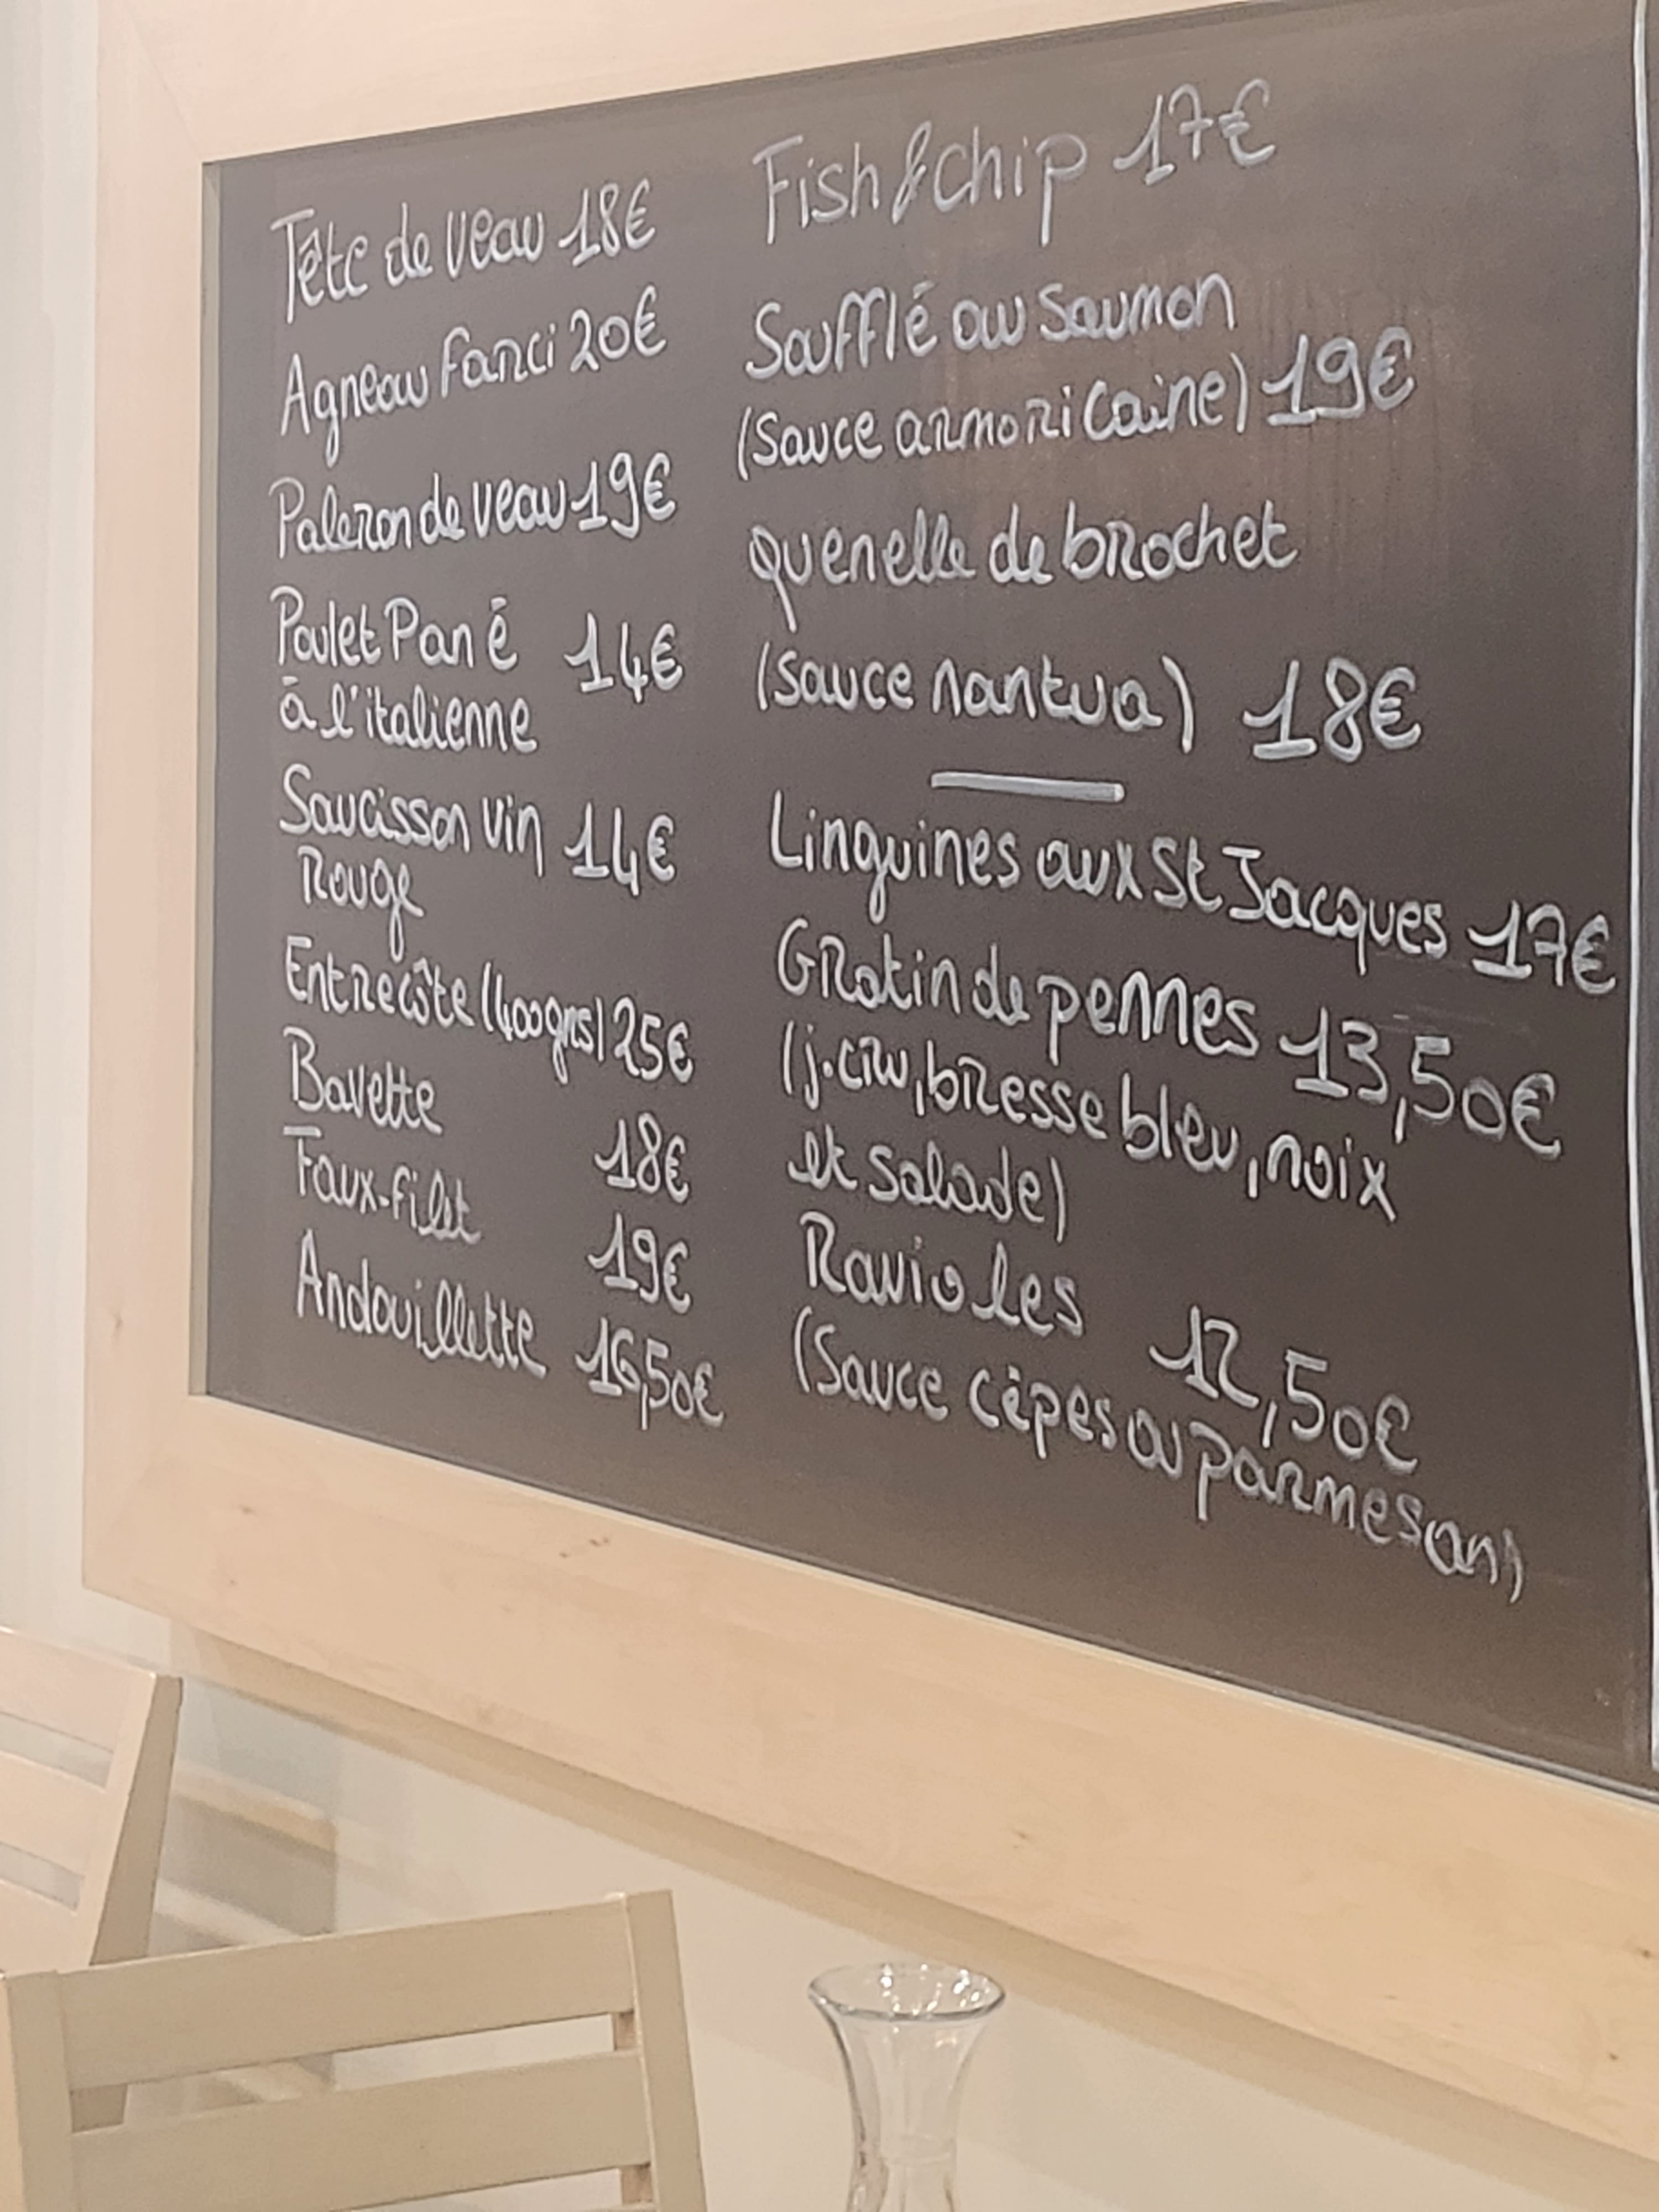 Tête de veau 18€
Agneau farci 20€
Paleron de veau 19€
Poulet Pané 14€
à l'italienne
Saucisson vin 14€
Rouge
Entrecôte (400grs) 25€
Bavette 18€
Faux-filet 19€
Andouillette 16,50€
Fish & chip 17€
Soufflé au saumon
(Sauce armoricaine) 19€
quenelle de brochet
(sauce nantua) 18€
Linguines aux St Jacques 17€
Gratin de pennes 13,50€
(j.cru, bresse bleu, noix
et salade)
Ravioles 12,50€
(Sauce cèpes ou parmesan)